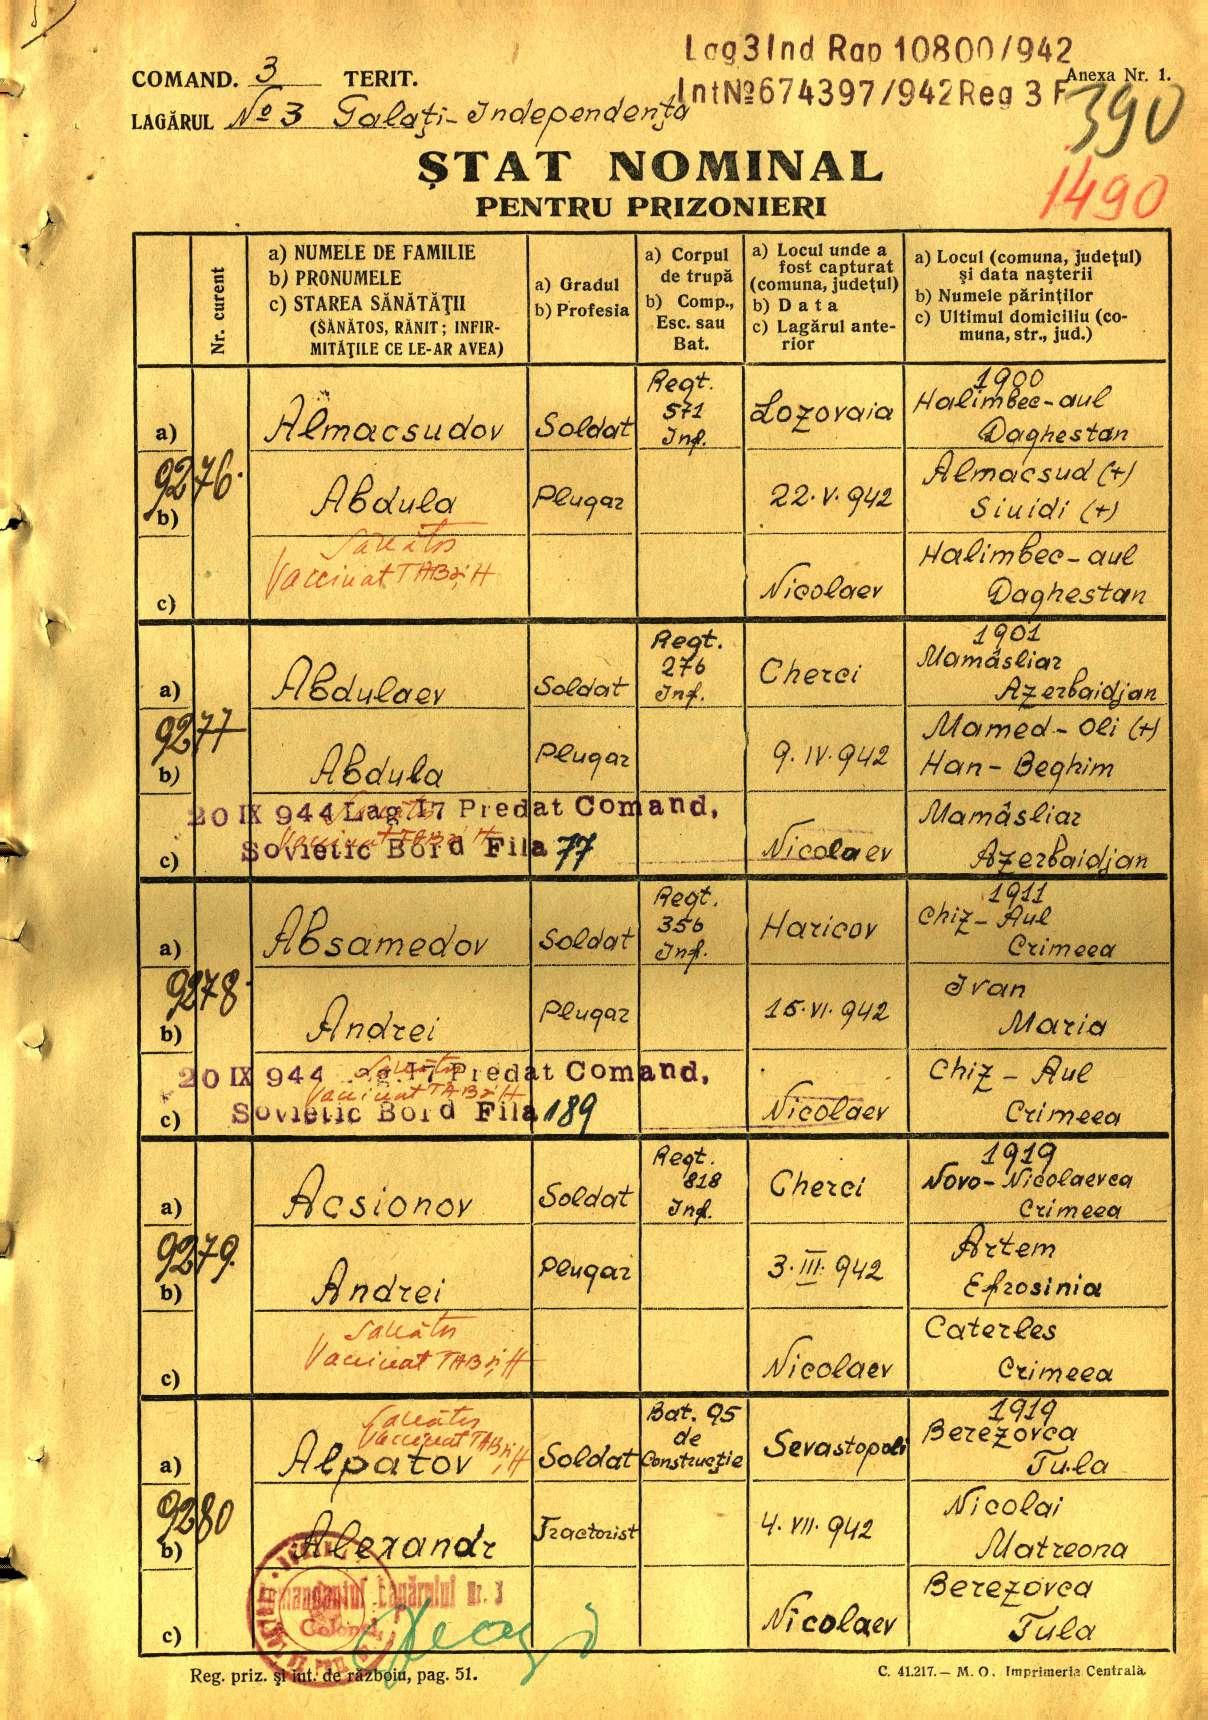 Lag 3 Ind Rap 10800/942
COMAND. 3 TERIT.
Anexa Nr. 1.
Int Nº 674397/942 Reg 3 F
LAGĂRUL Nº 3 Galaţi-Independenţa
390
ŞTAT NOMINAL
1490
PENTRU PRIZONIERI
Nr. curent
a) NUMELE DE FAMILIE
b) PRONUMELE
c) STAREA SĂNĂTĂŢII
(SĂNĂTOS, RĂNIT; INFIR-
MITĂŢILE CE LE-AR AVEA)
a) Gradul
b) Profesia
a) Corpul
de trupă
b) Comp.,
Esc. sau
Bat.
a) Locul unde a
fost capturat
(comuna, judeţul)
b) Data
c) Lagărul ante-
rior
a) Locul (comuna, judeţul)
şi data naşterii
b) Numele părinţilor
c) Ultimul domiciliu (co-
muna, str., jud.)
9276.
a) Almacsudov
Soldat
Regt.
571
Inf.
Lozovaia
1900
Halimbec-aul
Daghestan
b) Abdula
Plugar
22.V.942
Almacsud (+)
Siuidi (+)
c) Sănătos
Vaccinat TAB și H
Nicolaev
Halimbec-aul
Daghestan
9277
a) Abdulaev
Soldat
Regt.
276
Inf.
Cherci
1901
Mamâsliar
Azerbaidjan
b) Abdula
Plugar
9.IV.942
Mamed-Oli (+)
Han-Beghim
c) Sănătos
Vaccinat TAB și H
20 IX 944 Lag 17 Predat Comand,
Sovietic Bord Fila 77
Nicolaev
Mamâsliar
Azerbaidjan
9278.
a) Absamedov
Soldat
Regt.
356
Inf.
Haricov
1911
Chiz-Aul
Crimeea
b) Andrei
Plugar
15.VI.942
Ivan
Maria
c) Sănătos
Vaccinat TAB și H
20 IX 944 Lag 17 Predat Comand,
Sovietic Bord Fila 189
Nicolaev
Chiz-Aul
Crimeea
9279.
a) Acsionov
Soldat
Regt.
818
Inf.
Cherci
1919
Novo-Nicolaevca
Crimeea
b) Andrei
Plugar
3.III.942
Artem
Efrosinia
c) Sănătos
Vaccinat TAB și H
Nicolaev
Caterles
Crimeea
9280
Sănătos
Vaccinat TAB și H
a) Alpatov
Soldat
Bat. 95
de
Construcţie
Sevastopoli
1919
Berezovca
Tula
b) Alexandr
Tractorist
4.VII.942
Nicolai
Matreona
c)
Comandantul Lagărului Nr. 3
Colonel
Nicolaev
Berezovca
Tula
Reg. priz. şi int. de războiu, pag. 51.
C. 41.217.— M. O. Imprimeria Centrală.